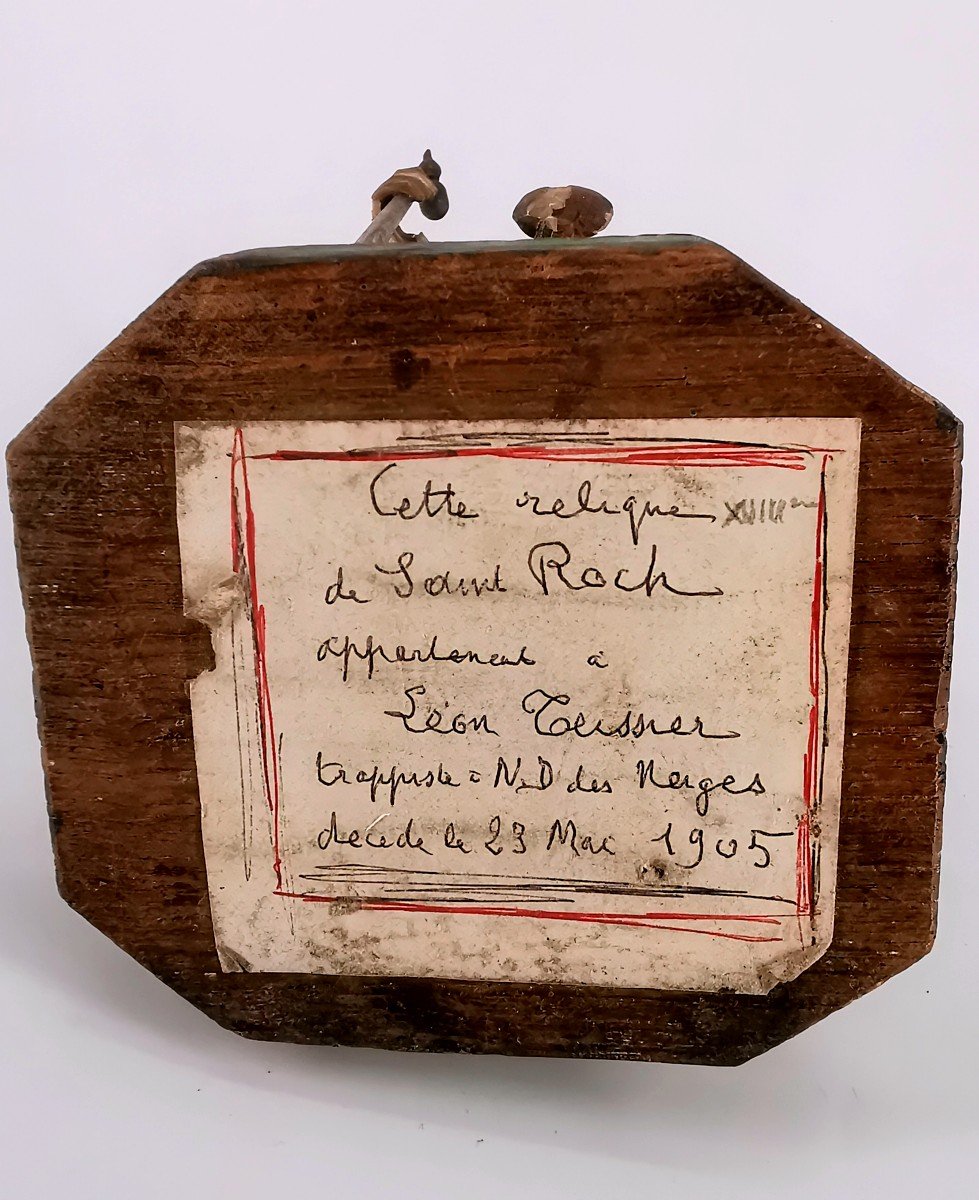 Cette relique XVIIIème
de Saint Roch
appartenait a
Léon Teissier
trappiste à N.D des Neiges
décédé le 23 Mai 1905